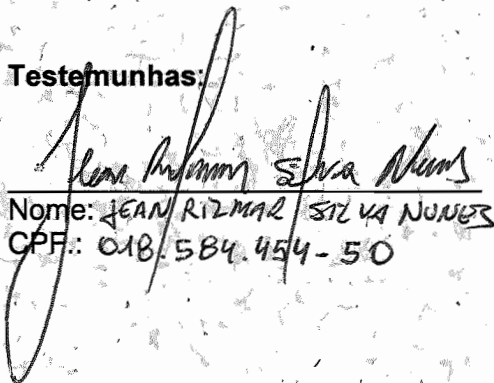 Testemunhas:
Jean Rizmar Silva Nunes
Nome: JEAN RIZMAR SILVA NUNES
CPF.: 018.584.454-50